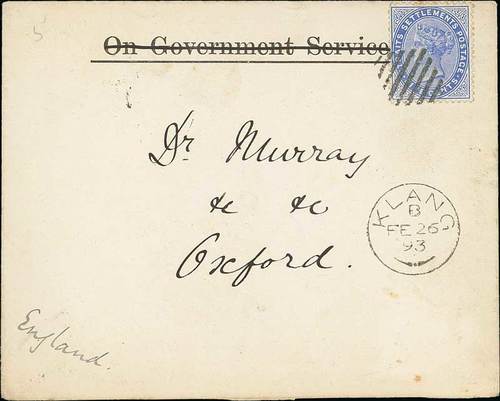 5
On Government Service
STRAITS SETTLEMENTS POSTAGE
Dr Murray
&c &c
Oxford.
KLANG
B
FE 26
93
England.